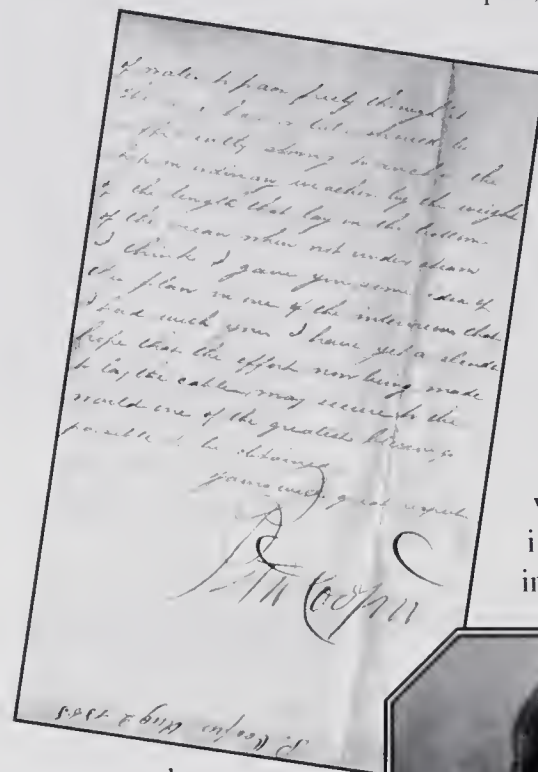 of water to pass freely through it
the
the
ship in ordinary weather by the weight
of the length that lay on the bottom
of the ocean when not under steam
I think I gave you some idea of
the plan in one of the interviews that
I had with you I have yet a
hope that the effort now being made
to lay the cable may secure to the
world one of the greatest blessings
possible to be obtained
yours with great respect
Peter Cooper
P. Cooper Aug
i
in